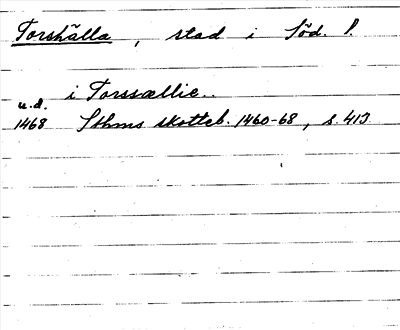 Torshälla, stad i Söd. l.
i Torssællie..
u.d.
1468 Sthms skotteb. 1460-68, s. 413.